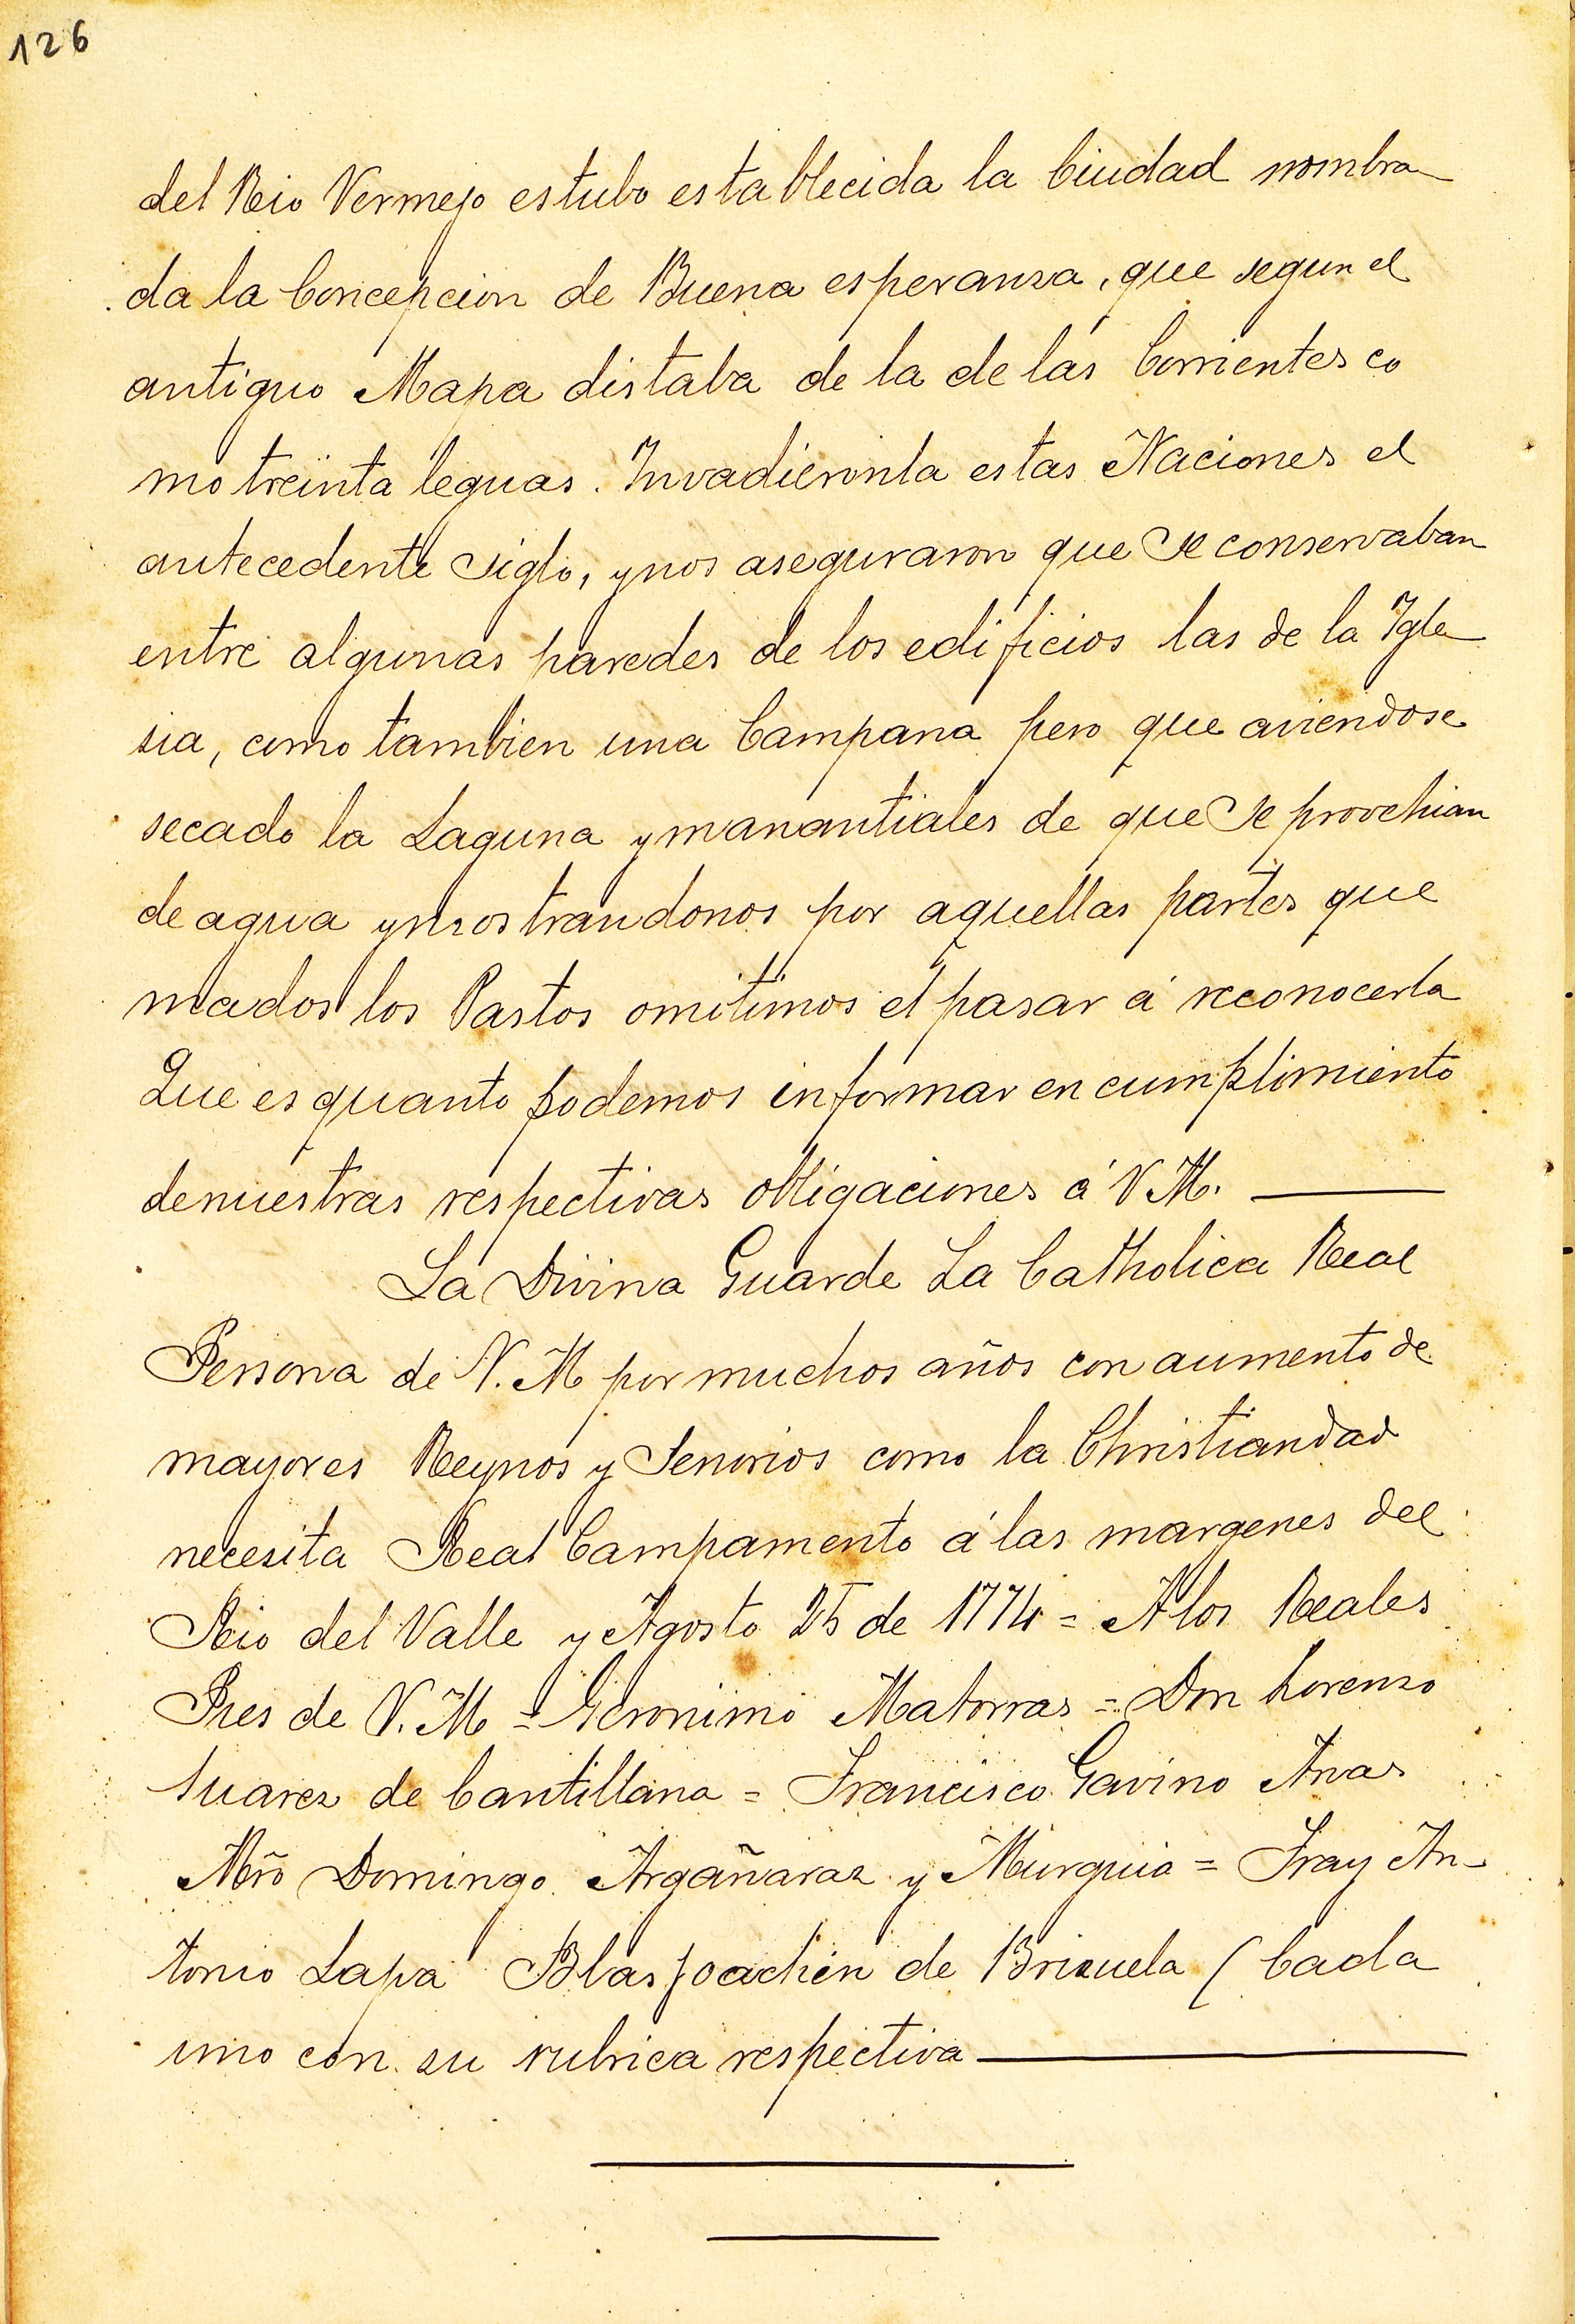 126
del Rio Vermejo estubo establecida la Ciudad nombra
da la Concepcion de Buena esperanza, que segun el
antiguo Mapa distaba de la de las Corrientes co
mo treinta leguas. Invadieronla estas Naciones el
antecedente siglo, y nos aseguraron que se conservaban
entre algunas paredes de los edificios las de la Igle
sia, como tambien una Campana pero que aviendose
secado la Laguna y manantiales de que se provehian
de agua y mostrandonos por aquellas partes que
mados los Pastos omitimos el pasar á reconocerla
Que es quanto podemos informar en cumplimiento
de nuestras respectivas obligaciones á V M.
La Divina Guarde La Catholica Real
Persona de V. M por muchos años con aumento de
mayores Reynos y Senorios como la Christiandad
necesita Real Campamento á las margenes del
Rio del Valle y Agosto 25 de 1774 = A los Reales
Pies de V. M = Geronimo Matorras = Don Lorenzo
Suarez de Cantillana = Francisco Gavino Arias
Mrõ Domingo Argañaraz y Murguia = Fray An-
tonio Lapa Blas Joachin de Brizuela ( Cada
uno con su rubrica respectiva